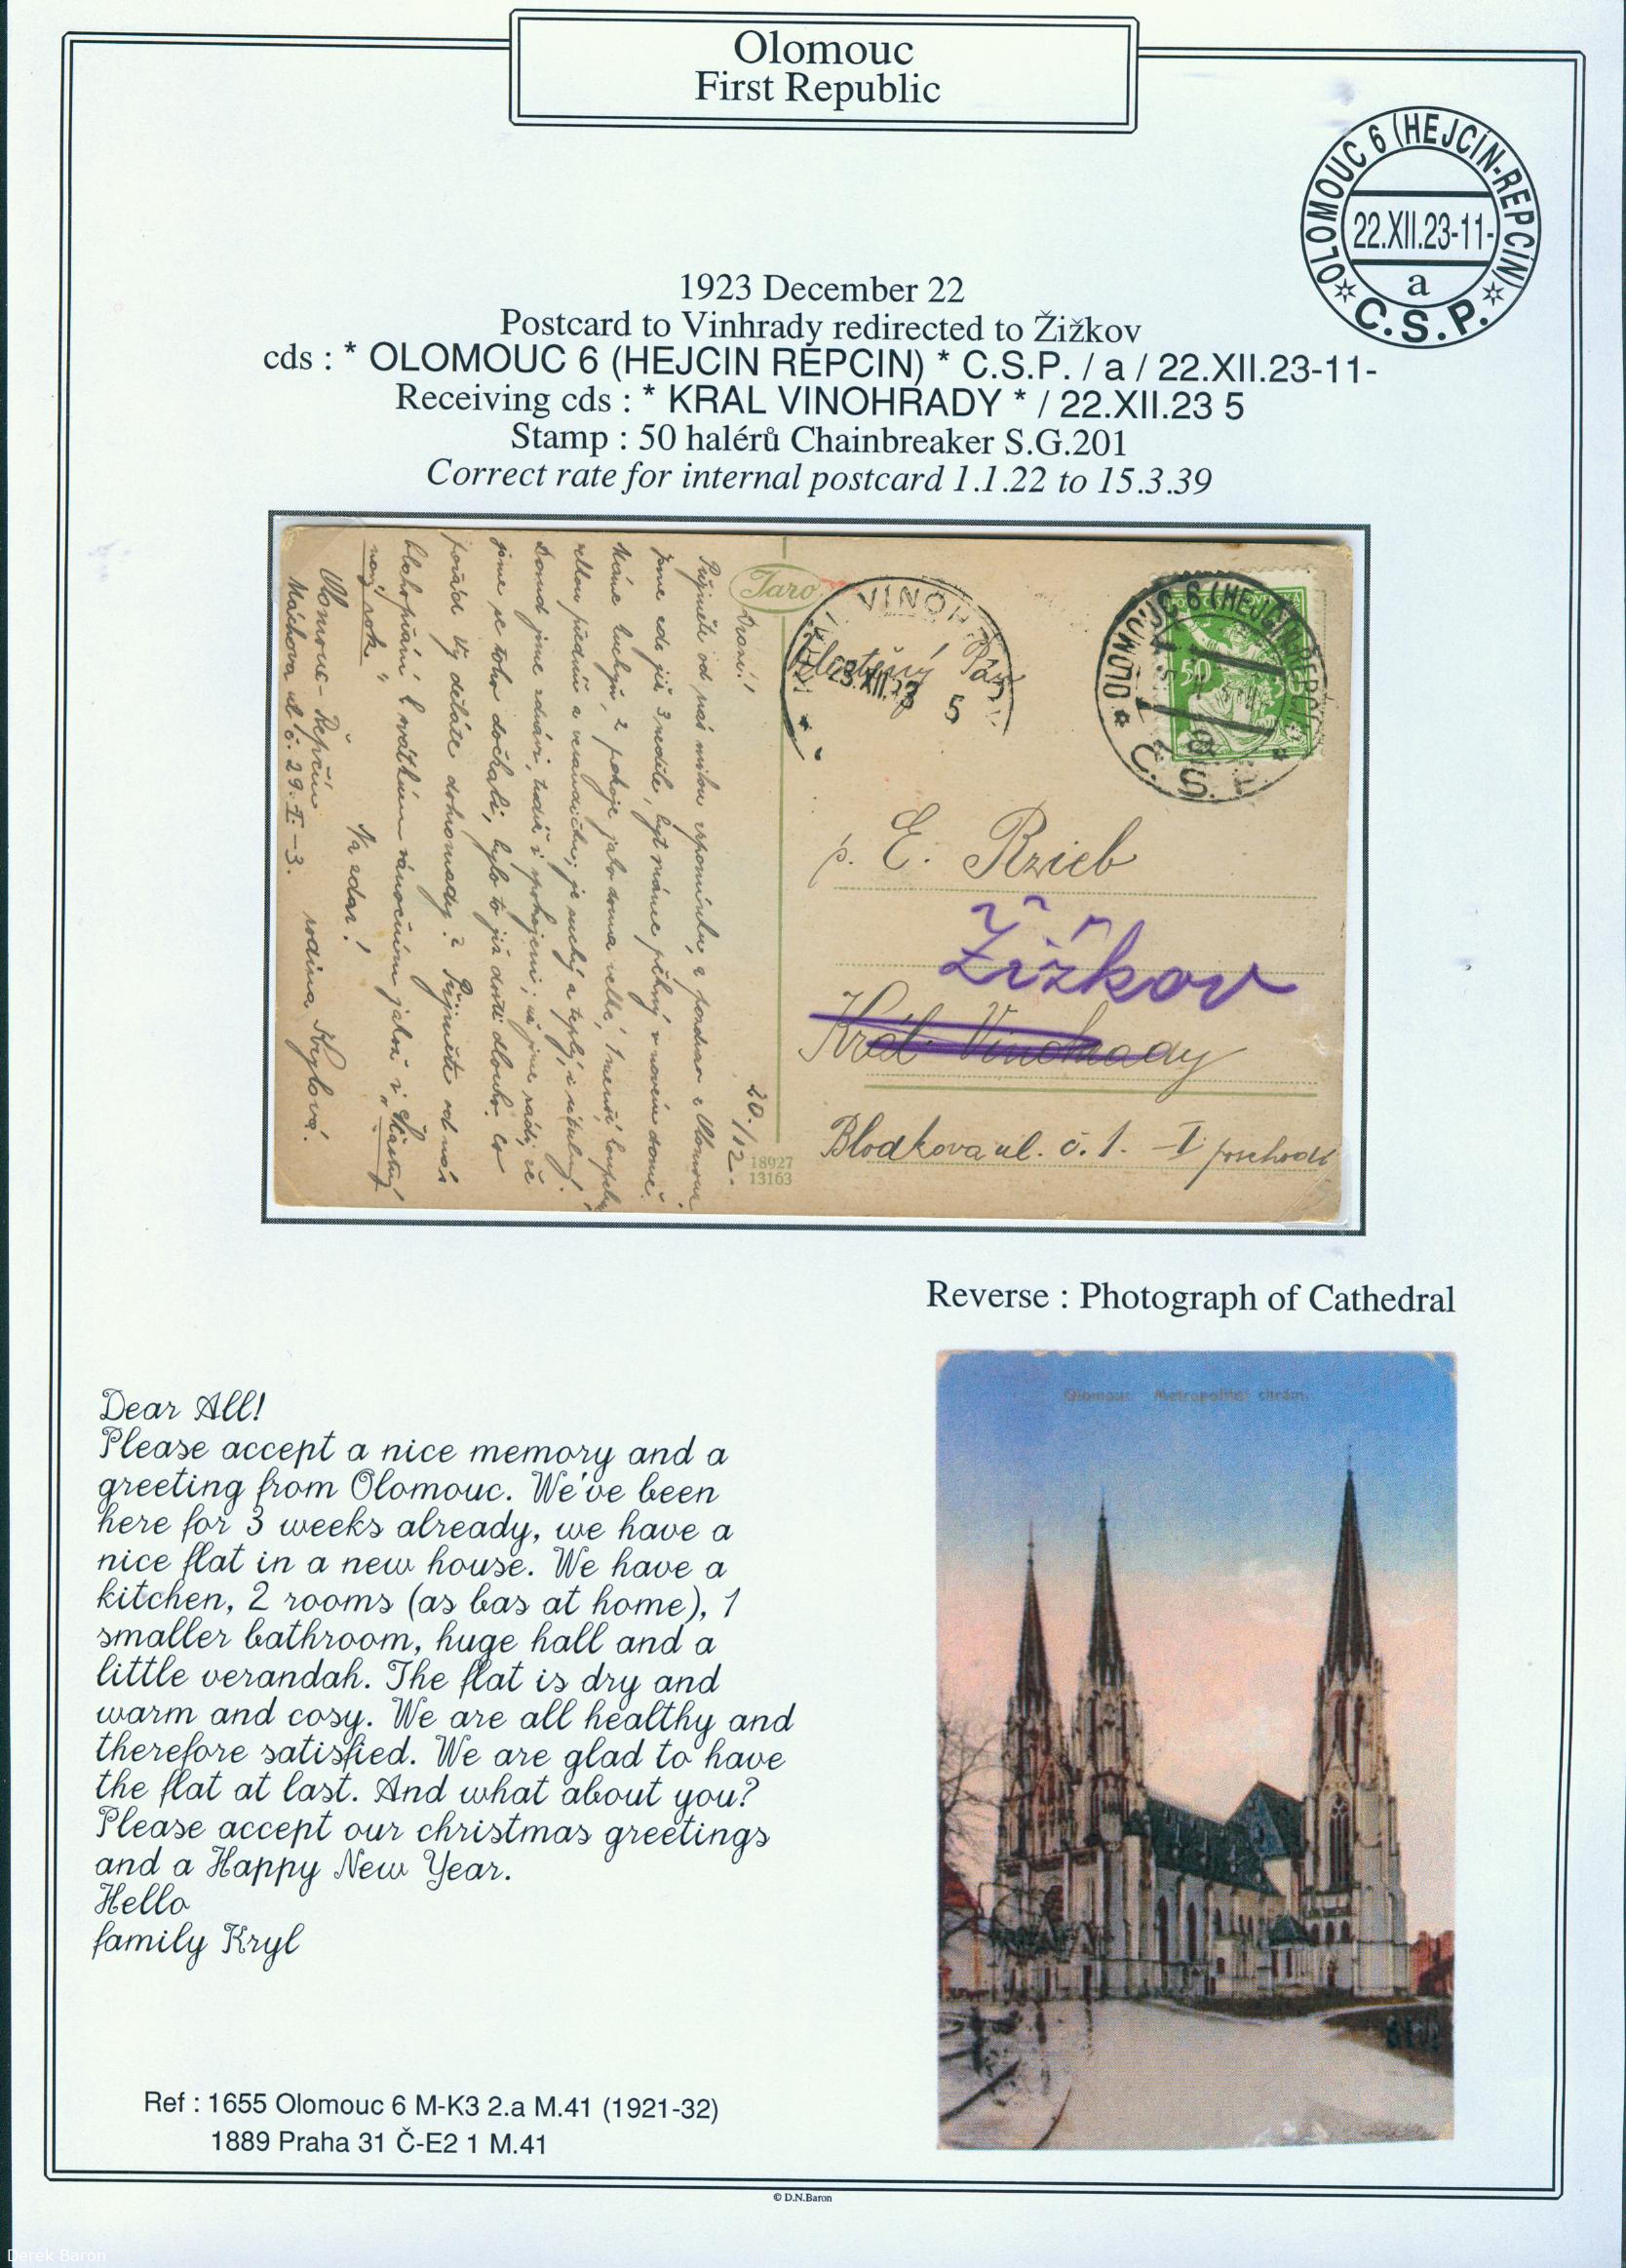 Olomouc
First Republic
OLOMOUC 6 (HEJCÍN-REPCIN)
22.XII.23-11-
a
* C.S.P. *
1923 December 22
Postcard to Vinhrady redirected to Žižkov
cds : * OLOMOUC 6 (HEJCIN REPCIN) * C.S.P. / a / 22.XII.23-11-
Receiving cds : * KRAL VINOHRADY * / 22.XII.23 5
Stamp : 50 halérů Chainbreaker S.G.201
Correct rate for internal postcard 1.1.22 to 15.3.39
Taro
VINOHR
23.XII.23 5
OLOMOUC 6 (HEJCIN-REPCIN)
50
C. S. P.
p. E. Rzieb
Žižkov
Král. Vinohrady
Blodkova ul. č. 1. I poschodí
20./12.
Drazí!
Přijměte od nás milou vzpomínku a pozdrav z Olomouce
jsme zde již 3 neděle, byt máme pěkný v novém domě.
Máme kuchyň, 2 pokoje jako doma velké, 1 menší
velkou předsíň a verandičku; je suchý a teplý i útulný.
Dosud jsme zdrávi, tudíž i spokojeni;
jsme se toho dočkali, bylo to již dosti dlouho. Co
pořád Vy děláte dohromady? Přijměte od nás
blahopřání k svátkům vánočním jakož i „Šťastný
nový rok"
Na zdar!
Olomouc - Řepčín rodina Krylová.
Máchova ul č. 29. I - 3.
18927
13163
Reverse : Photograph of Cathedral
Olomouc Metropolitní chrám.
Dear All!
Please accept a nice memory and a
greeting from Olomouc. We've been
here for 3 weeks already, we have a
nice flat in a new house. We have a
kitchen, 2 rooms (as bas at home), 1
smaller bathroom, huge hall and a
little verandah. The flat is dry and
warm and cosy. We are all healthy and
therefore satisfied. We are glad to have
the flat at last. And what about you?
Please accept our christmas greetings
and a Happy New Year.
Hello
family Kryl
Ref : 1655 Olomouc 6 M-K3 2.a M.41 (1921-32)
1889 Praha 31 Č-E2 1 M.41
© D.N.Baron
Derek Baron